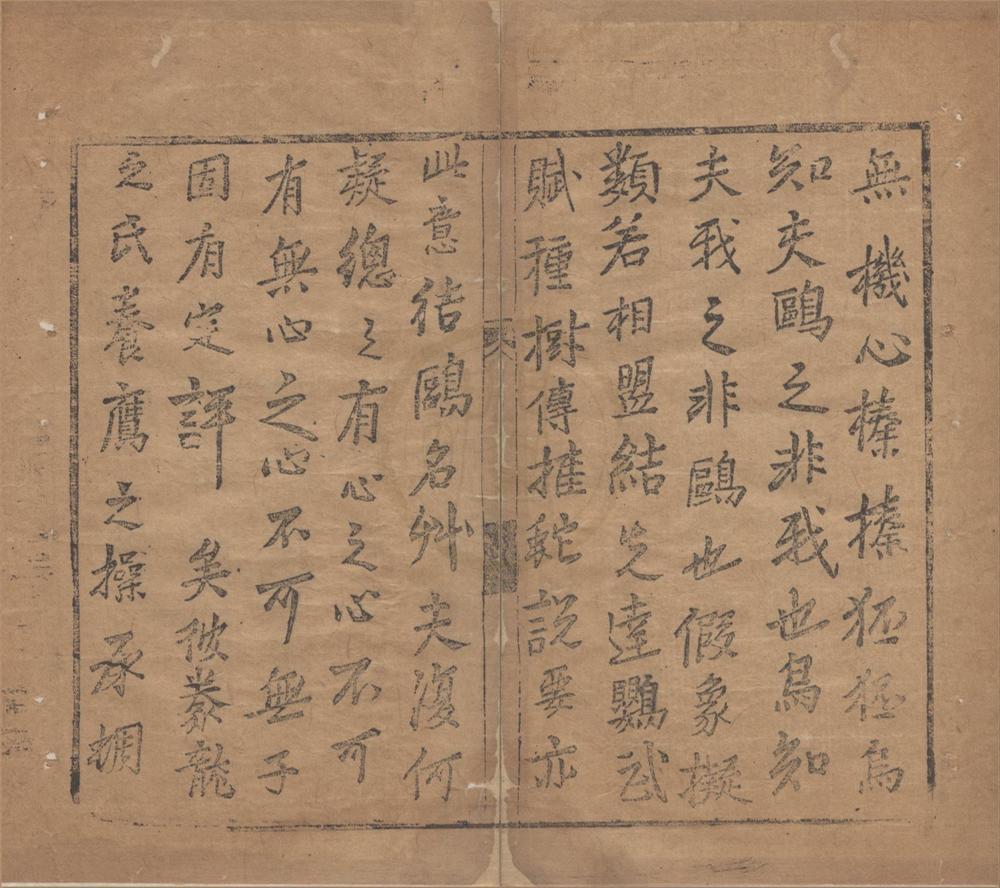 無機心榛榛狉狉烏
知夫鷗之非我也烏知
夫我之非鷗也假象擬
類若相盟結先達鸚武
賦種樹傳捕蛇説要亦
此意結鷗名艸夫復何
疑總之有心之心不可
有無心之心不可無子
固有定評矣彼豢龍
之氏養鷹之操承蜩